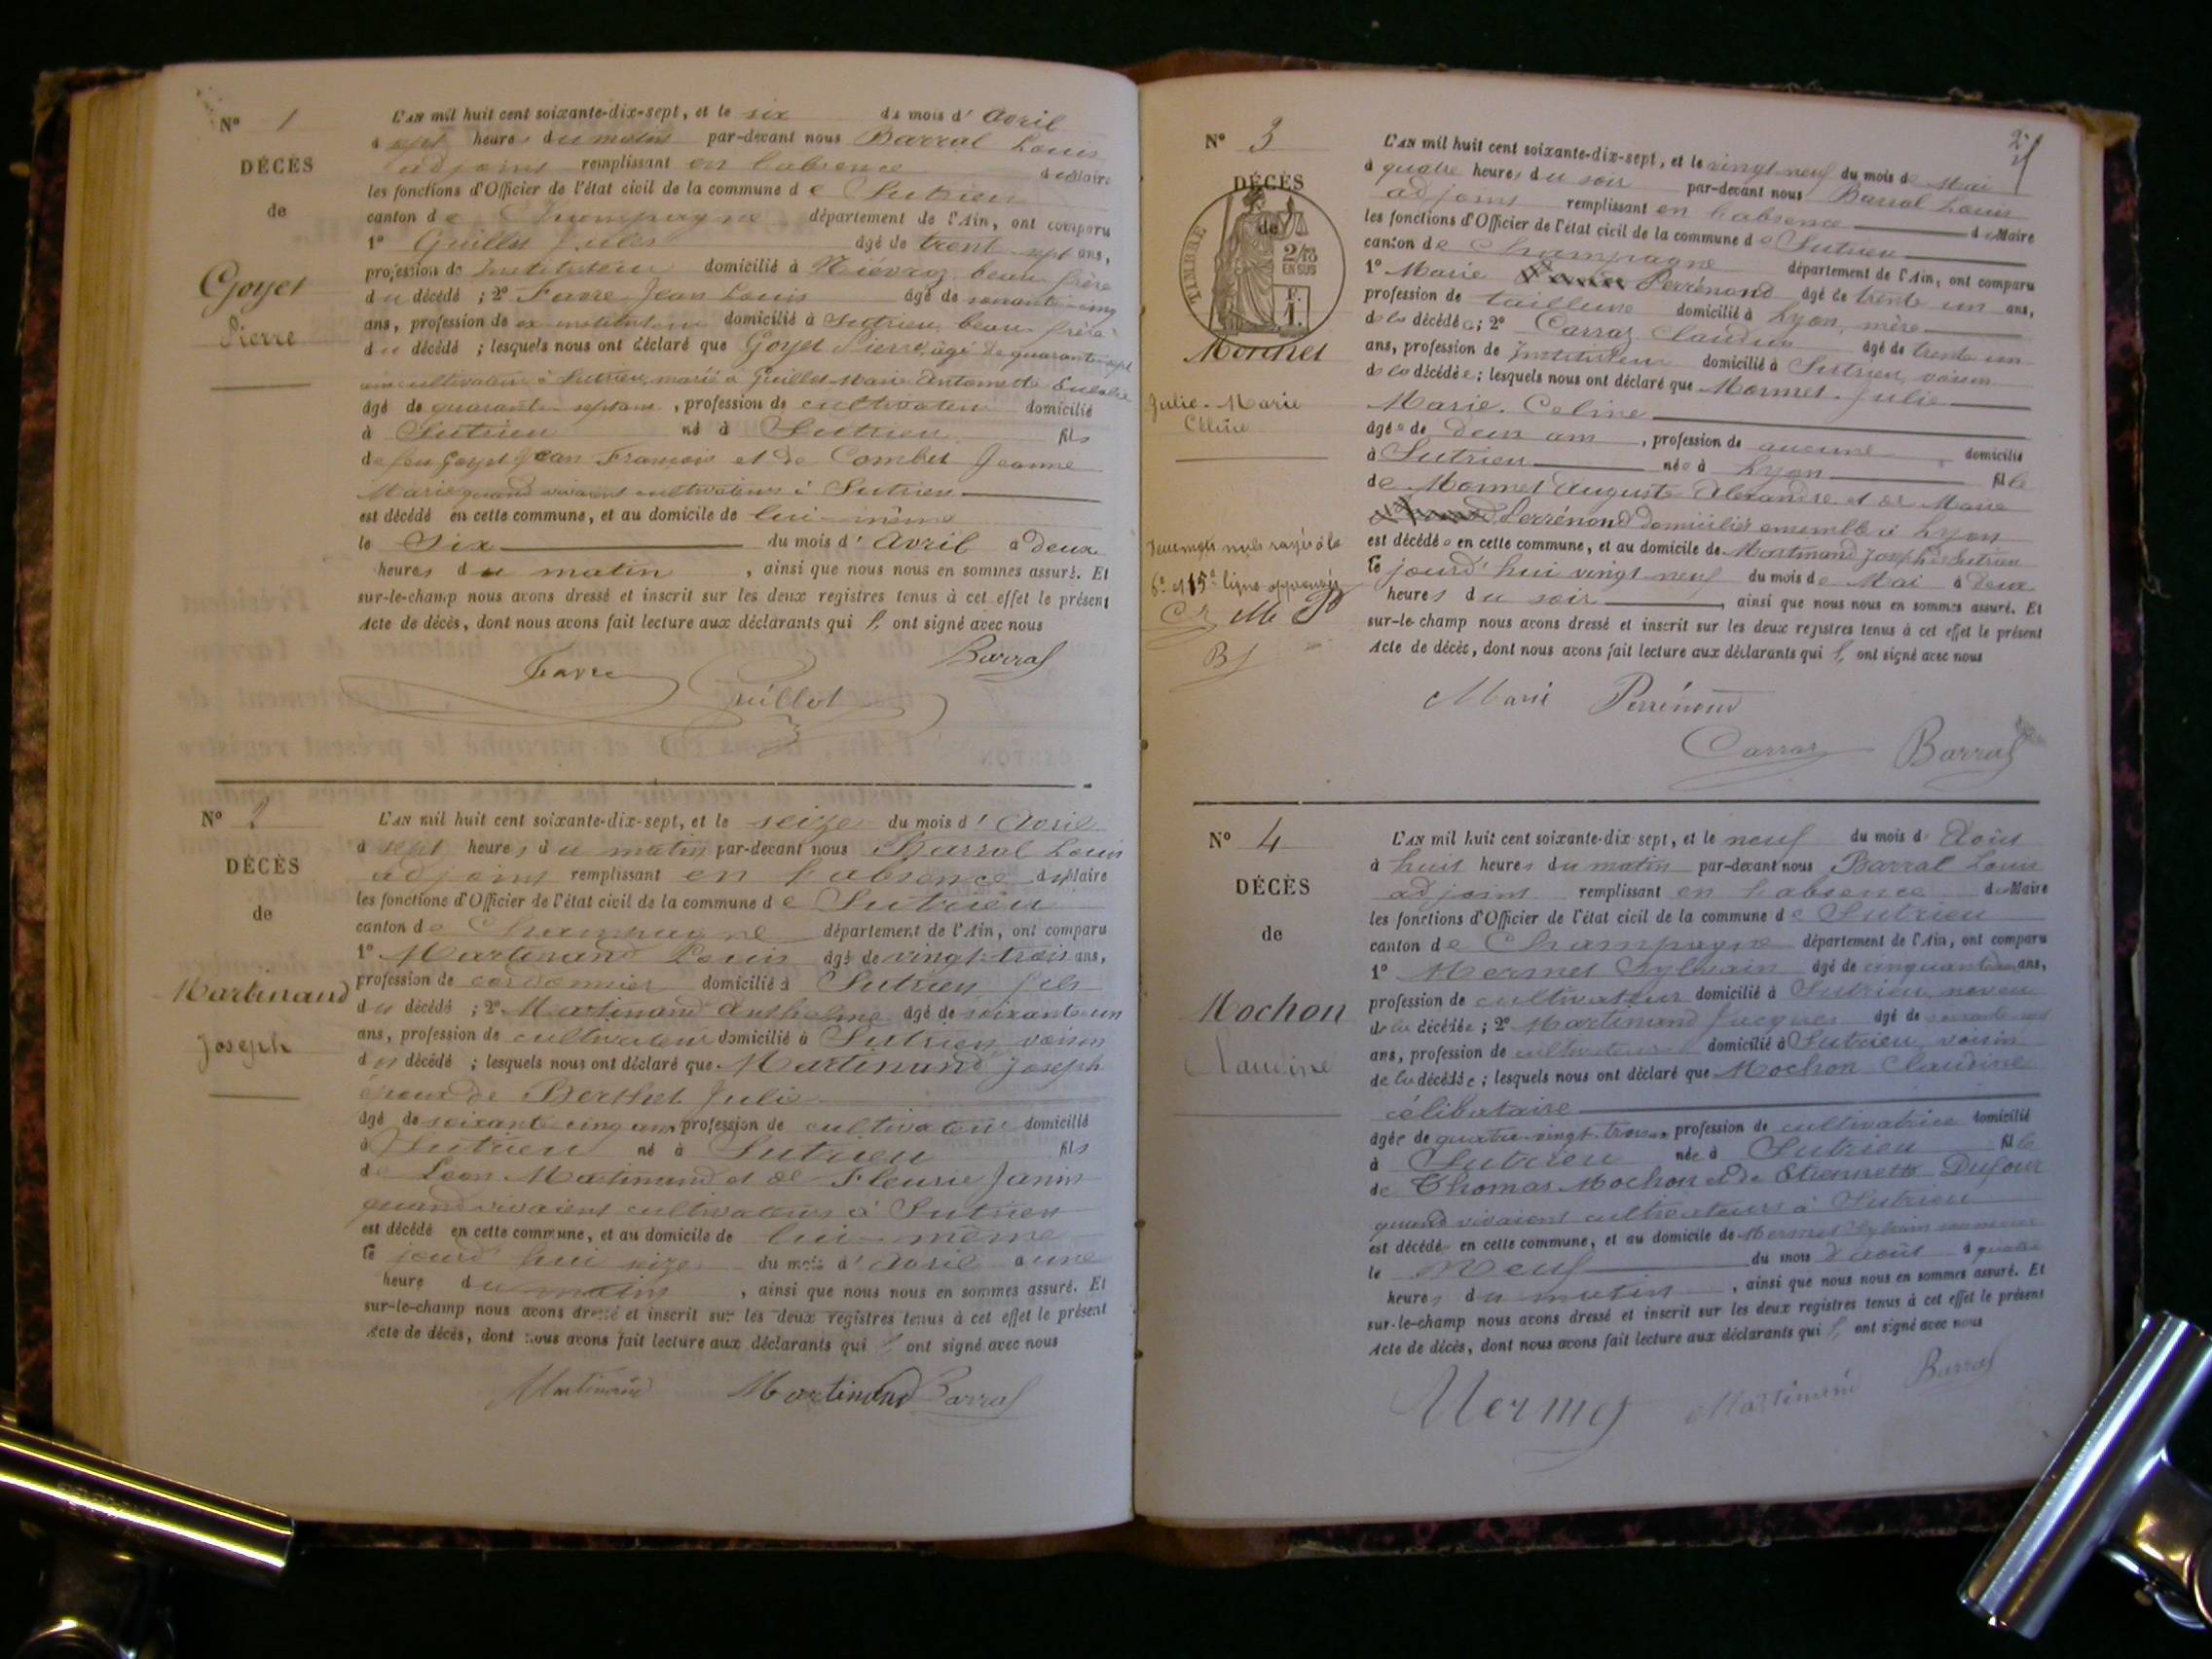 N° 1
DÉCÈS
de
Goyet
Pierre
L'AN mil huit cent soixante-dix-sept, et le six du mois d' Avril
à sept heures du matin par-devant nous Barral Louis
adjoint remplissant en l'absence du Maire
les fonctions d'Officier de l'état civil de la commune de Sutrieu
canton de Champagne département de l'Ain, ont comparu
1° Guillot Jules âgé de trente sept ans,
profession de Instituteur domicilié à Niévroz beau frère
du décédé ; 2° Favre Jean Louis âgé de soixante cinq
ans, profession de ex instituteur domicilié à Sutrieu beau frère
du décédé ; lesquels nous ont déclaré que Goyet Pierre, âgé de quarante sept
ans cultivateur à Sutrieu, marié à Guillot Marie Antoinette Eulalie
âgé de quarante sept ans, profession de cultivateur domicilié
à Sutrieu né à Sutrieu fils
de feu Goyet Jean François et de Combet Jeanne
Marie quand vivaient cultivateurs à Sutrieu
est décédé en cette commune, et au domicile de lui-même
le Six du mois d' Avril à deux
heures du matin, ainsi que nous nous en sommes assuré. Et
sur-le-champ nous avons dressé et inscrit sur les deux registres tenus à cet effet le présent
Acte de décès, dont nous avons fait lecture aux déclarants qui l' ont signé avec nous
Favre Guillot Barral
N° 2
DÉCÈS
de
Martinand
Joseph
L'AN mil huit cent soixante-dix-sept, et le seize du mois d' Avril
à sept heures du matin par-devant nous Barral Louis
adjoint remplissant en l'absence du Maire
les fonctions d'Officier de l'état civil de la commune de Sutrieu
canton de Champagne département de l'Ain, ont comparu
1° Martinand Louis âgé de vingt-trois ans,
profession de cordonnier domicilié à Sutrieu fils
du décédé ; 2° Martinand Anthelme âgé de soixante un
ans, profession de cultivateur domicilié à Sutrieu voisin
du décédé ; lesquels nous ont déclaré que Martinand Joseph
époux de Berthet Julie
âgé de soixante cinq ans profession de cultivateur domicilié
à Sutrieu né à Sutrieu fils
de Leon Martinand et de Fleurie Janin
quand vivaient cultivateurs à Sutrieu
est décédé en cette commune, et au domicile de lui-même
le jourd'hui seize du mois d' Avril à une
heure du matin, ainsi que nous nous en sommes assuré. Et
sur-le-champ nous avons dressé et inscrit sur les deux registres tenus à cet effet le présent
Acte de décès, dont nous avons fait lecture aux déclarants qui l' ont signé avec nous
Martinand Martinand Barral
N° 3
DÉCÈS
de
TIMBRE
2/10
EN SUS
F.
1.
Monnet
Julie-Marie
Céline
Deux mots nuls rayés à la
6e et 15e ligne approuvés
Cz M P
B
2
L'AN mil huit cent soixante-dix-sept, et le vingt neuf du mois de Mai
à quatre heures du soir par-devant nous Barral Louis
adjoint remplissant en l'absence du Maire
les fonctions d'Officier de l'état civil de la commune de Sutrieu
canton de Champagne département de l'Ain, ont comparu
1° Marie Perrénond âgé de trente un ans,
profession de tailleuse domicilié à Lyon, mère
de la décédée ; 2° Carraz Claudius âgé de trente un
ans, profession de Instituteur domicilié à Sutrieu, voisin
de la décédée ; lesquels nous ont déclaré que Monnet Julie
Marie Celine
âgée de deux ans, profession de aucune domicilié
à Sutrieu née à Lyon fille
de Monnet Auguste Alexandre et de Marie
Perrénond domiciliés ensemble à Lyon
est décédée en cette commune, et au domicile de Martinand Joseph à Sutrieu
le jourd'hui vingt neuf du mois de Mai à deux
heures du soir, ainsi que nous nous en sommes assuré. Et
sur-le-champ nous avons dressé et inscrit sur les deux registres tenus à cet effet le présent
Acte de décès, dont nous avons fait lecture aux déclarants qui l' ont signé avec nous
Marie Perrénond
Carraz Barral
N° 4
DÉCÈS
de
Mochon
Claudine
L'AN mil huit cent soixante-dix-sept, et le neuf du mois d' Août
à huit heures du matin par-devant nous Barral Louis
adjoint remplissant en l'absence du Maire
les fonctions d'Officier de l'état civil de la commune de Sutrieu
canton de Champagne département de l'Ain, ont comparu
1° Mermet Sylvain âgé de cinquante deux ans,
profession de cultivateur domicilié à Sutrieu, neveu
de la décédée ; 2° Martinand Jacques âgé de soixante
ans, profession de cultivateur domicilié à Sutrieu, voisin
de la décédée ; lesquels nous ont déclaré que Mochon Claudine
célibataire
âgée de quatre-vingt-trois ans profession de cultivatrice domicilié
à Sutrieu née à Sutrieu fille
de Thomas Mochon et de Etiennette Dufour
quand vivaient cultivateurs à Sutrieu
est décédée en cette commune, et au domicile de Mermet Sylvain
le Neuf du mois d'août à quatre
heures du matin, ainsi que nous nous en sommes assuré. Et
sur-le-champ nous avons dressé et inscrit sur les deux registres tenus à cet effet le présent
Acte de décès, dont nous avons fait lecture aux déclarants qui l' ont signé avec nous
Mermet Martinand Barral